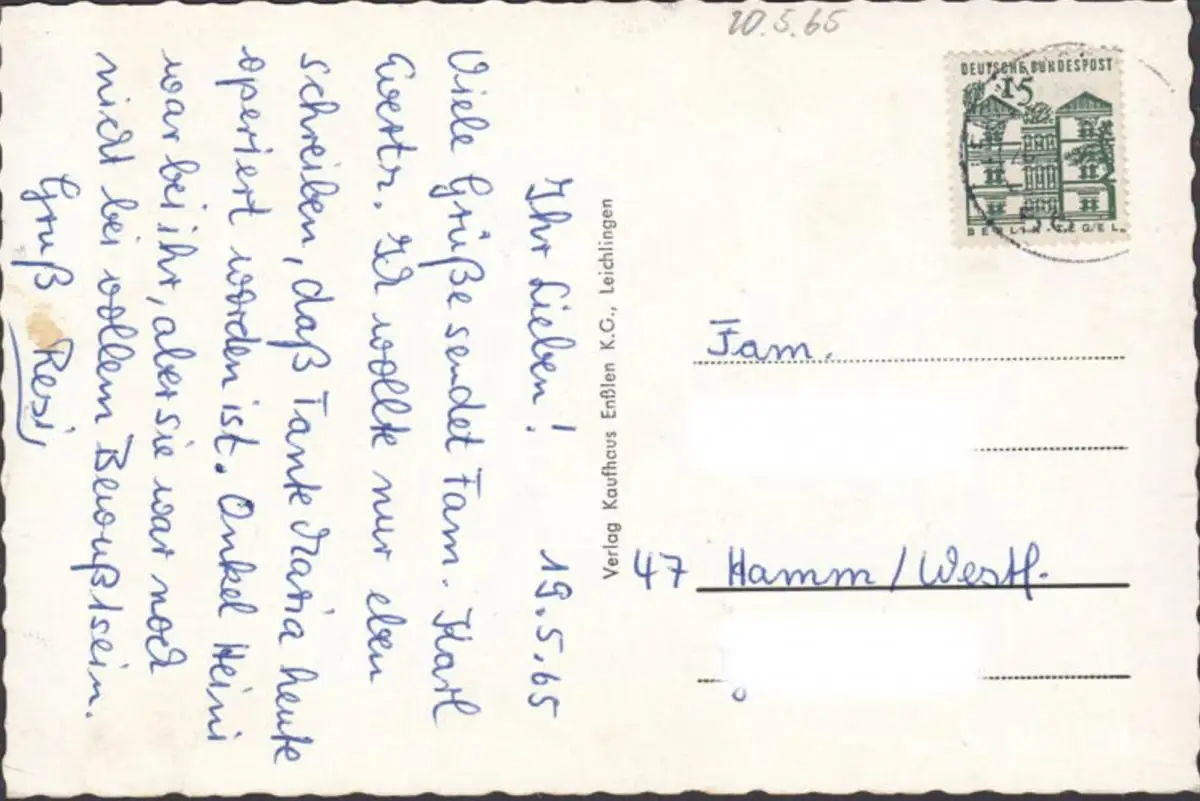 20.5.65
Ihr Lieben! 19.5.65
Viele Grüße sendet Fam. Karl
Evertz. Ich wollte nur eben
schreiben, daß Tante Maria heute
operiert worden ist. Onkel Heini
war bei ihr, aber sie war noch
nicht bei vollem Bewußtsein.
Gruß Resi
Verlag Kaufhaus Enßlen K.G., Leichlingen
DEUTSCHE BUNDESPOST
15
BERLIN-TEGEL
Fam.
47 Hamm/Westf.